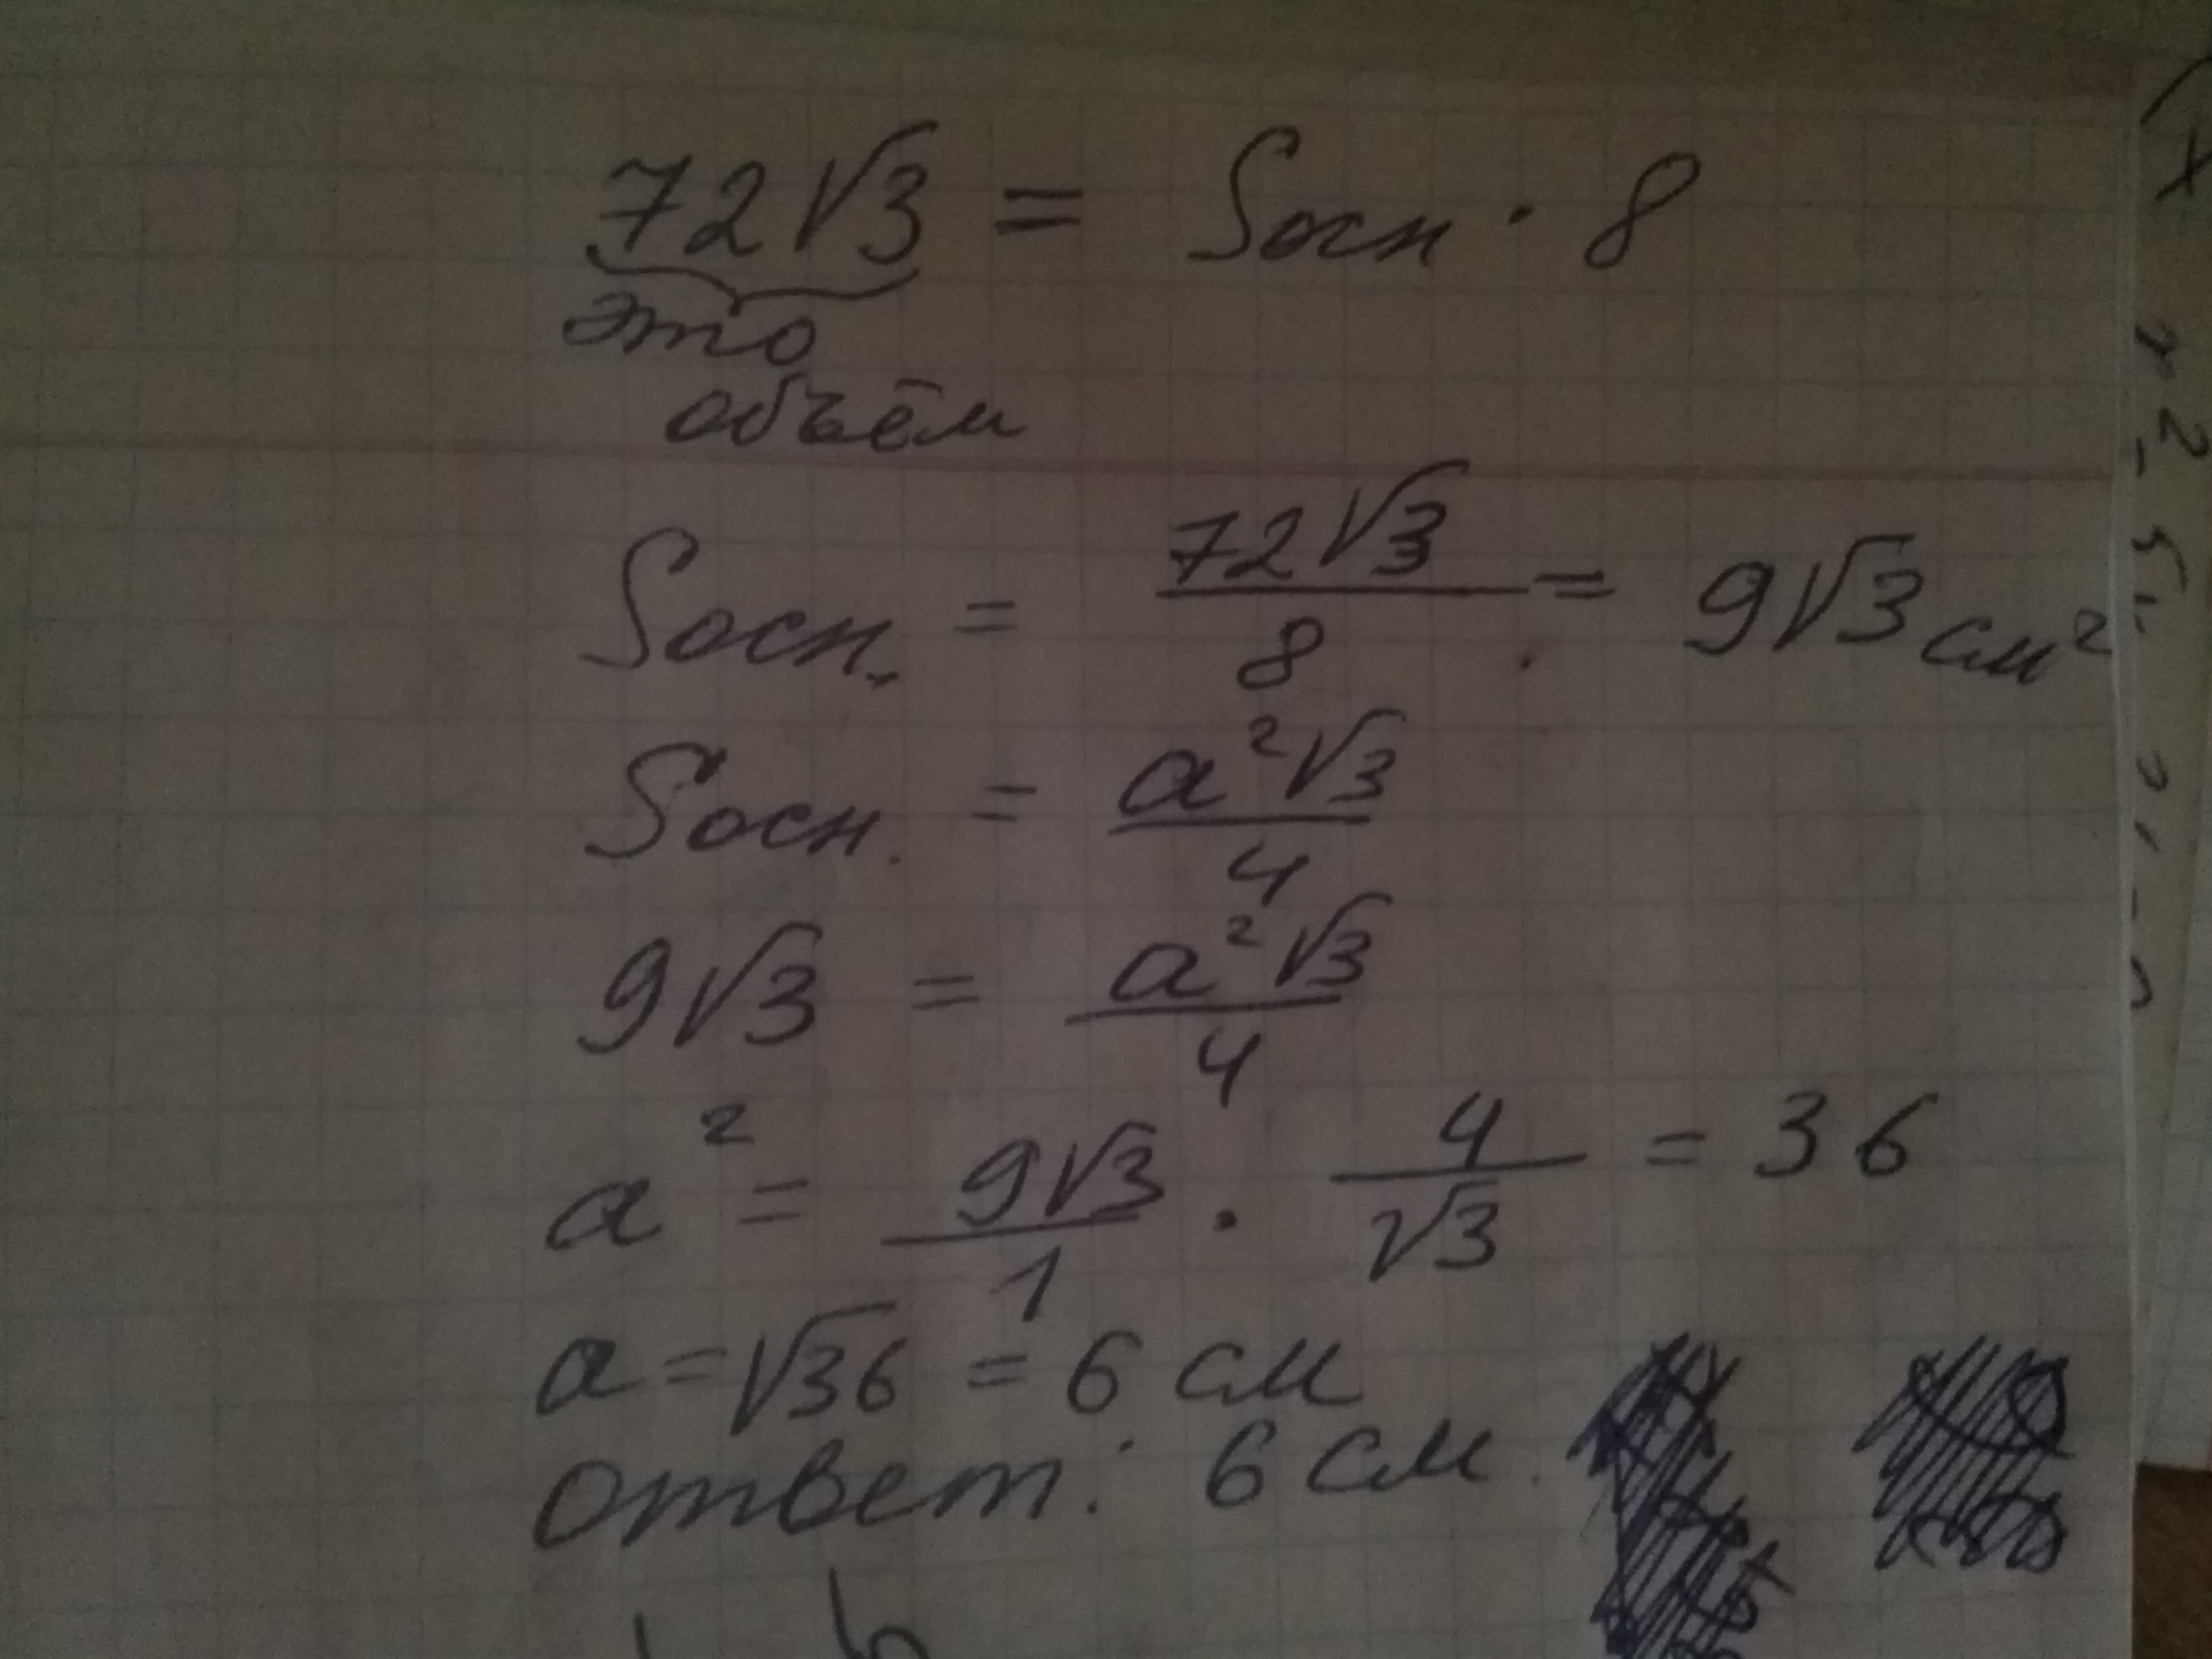 72√3 = Sосн · 8
это
объём
Sосн. = 72√3 / 8 = 9√3 см²
Sосн. = a²√3 / 4
9√3 = a²√3 / 4
a² = 9√3 / 1 · 4 / √3 = 36
a = √36 = 6 см
ответ: 6 см.